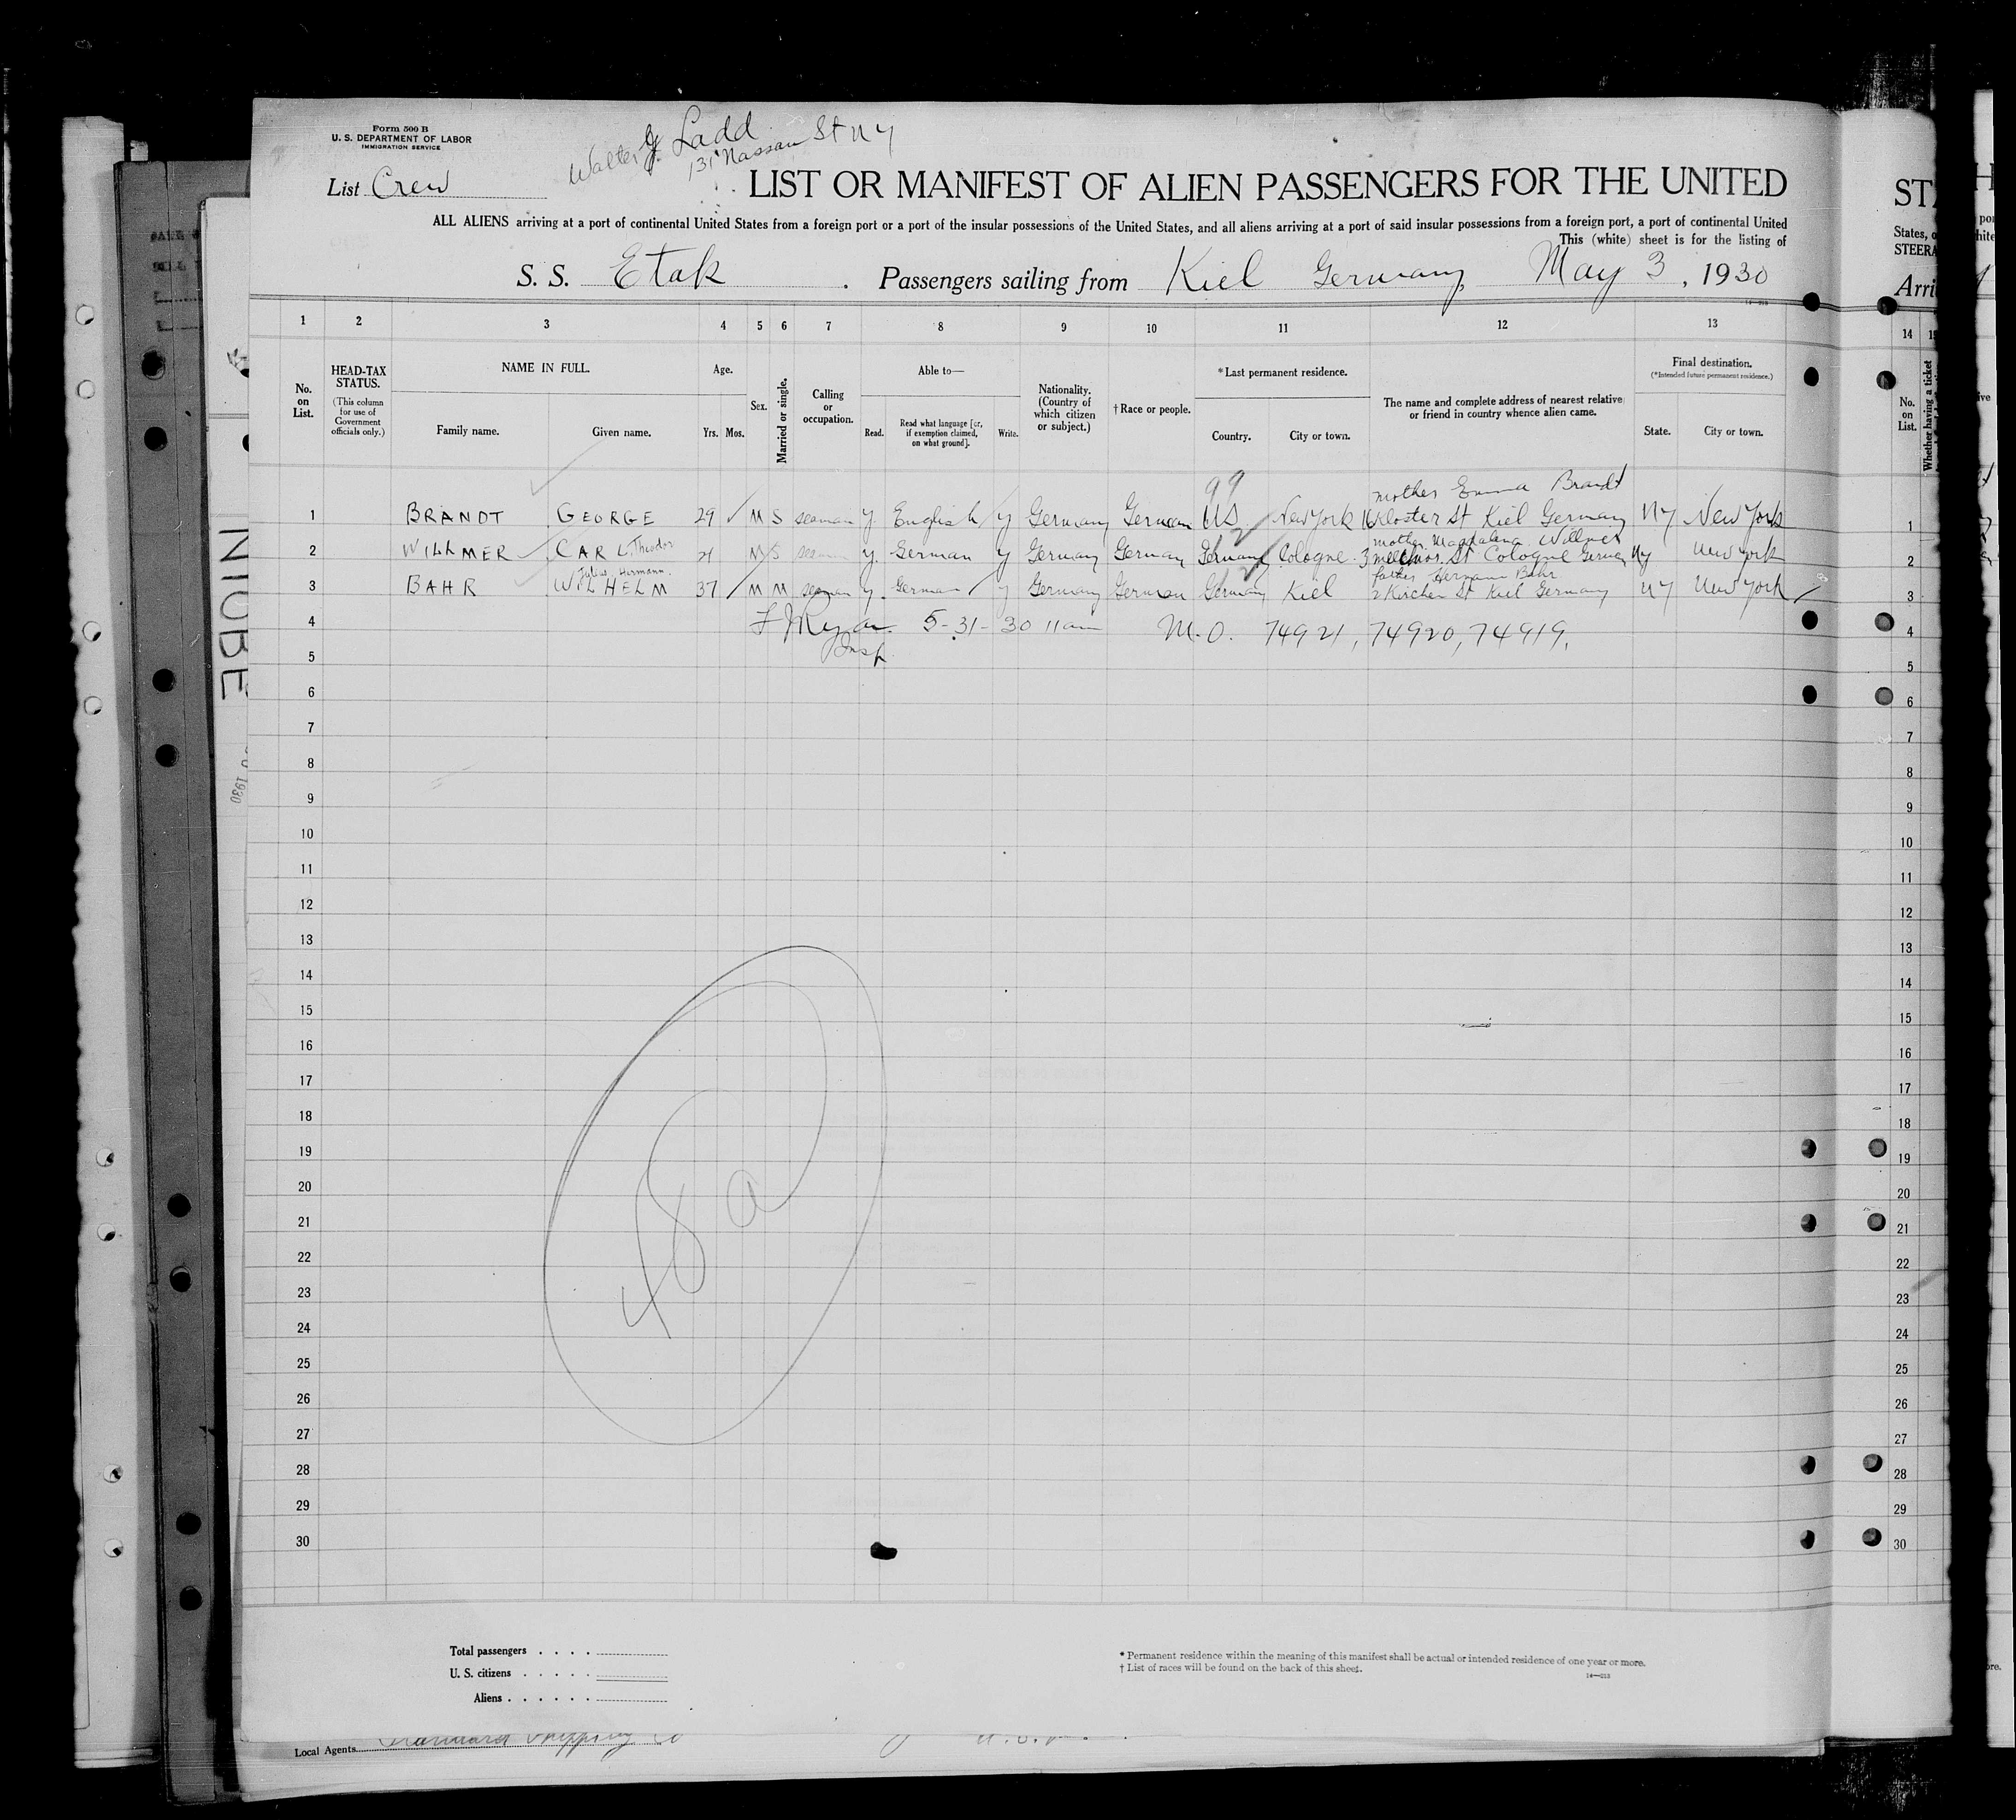 Form 500 B
U. S. DEPARTMENT OF LABOR
IMMIGRATION SERVICE
Walter G. Ladd
131 Nassau St NY
List Crew
LIST OR MANIFEST OF ALIEN PASSENGERS FOR THE UNITED
ALL ALIENS arriving at a port of continental United States from a foreign port or a port of the insular possessions of the United States, and all aliens arriving at a port of said insular possessions from a foreign port, a port of continental United
This (white) sheet is for the listing of
S. S. Etak . Passengers sailing from Kiel Germany, May 3, 1930
1 2 3 4 5 6 7 8 9 10 11 12 13
No. on List.
HEAD-TAX STATUS.
(This column for use of Government officials only.)
NAME IN FULL.
Family name. Given name.
Age.
Yrs. Mos.
Sex.
Married or single.
Calling or occupation.
Able to—
Read. Read what language [or, if exemption claimed, on what ground]. Write.
Nationality. (Country of which citizen or subject.)
† Race or people.
* Last permanent residence.
Country. City or town.
The name and complete address of nearest relative or friend in country whence alien came.
Final destination.
(*Intended future permanent residence.)
State. City or town.
99
mother Emma Brandt
1 BRANDT GEORGE 29 M S seaman y English y Germany German US New York 16 Kloster St Kiel Germany NY New York
mother Magdalena Willmer
2 WILLMER CARL Theodor 21 M S seaman y. German y Germany German Germany Cologne 3 Melchior St Cologne NY New York
Julius Hermann
father Hermann Bahr
3 BAHR WILHELM 37 M M seaman y German y Germany German Germany Kiel 2 Kirchen St Kiel Germany NY New York
4 F J Ryan 5-31-30 11 am M.O. 74921, 74920, 74919.
Insp.
5
6
7
8
9
10
11
12
13
14
15
16
17
18
19
20
21
22
23
24
25
26
27
28
29
30
48 a
Total passengers
U. S. citizens
Aliens
* Permanent residence within the meaning of this manifest shall be actual or intended residence of one year or more.
† List of races will be found on the back of this sheet.
14—013
Local Agents
Shipping Co
NIOBE
1930
STA
States, o
STEERA
Arri
14
No. on List.
Whether having a ticket
1
2
3
4
5
6
7
8
9
10
11
12
13
14
15
16
17
18
19
20
21
22
23
24
25
26
27
28
29
30